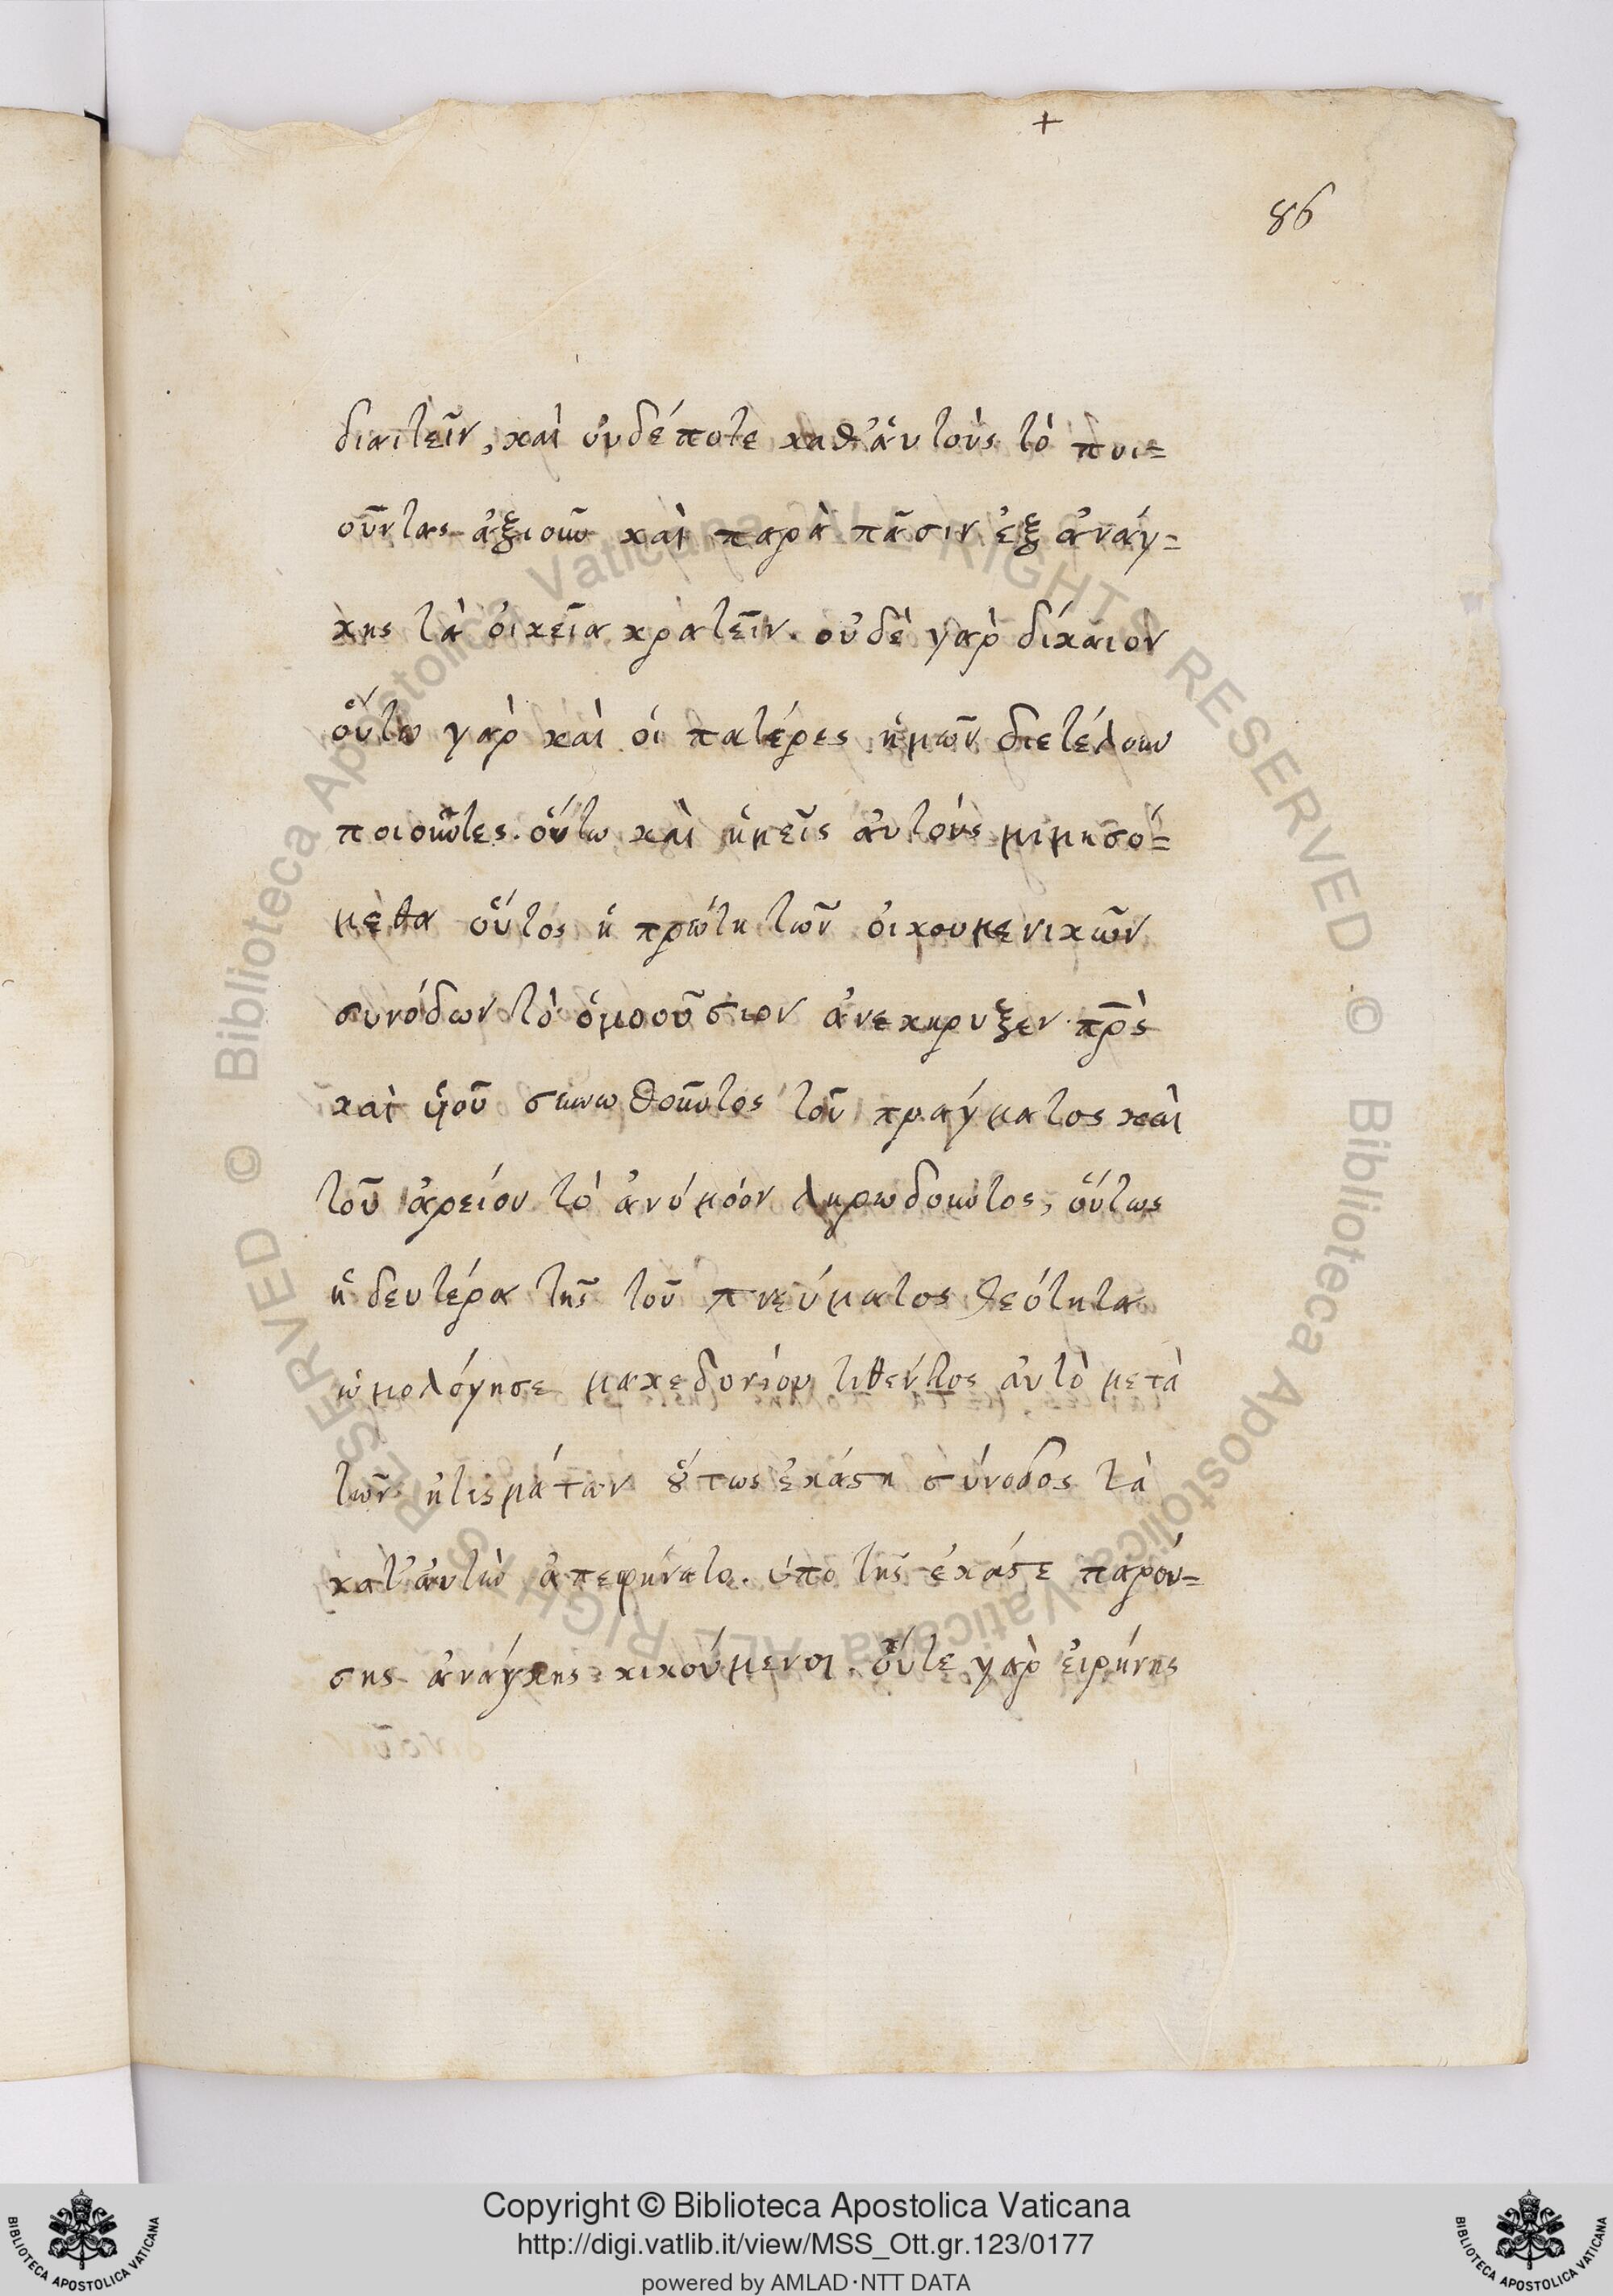 +
86
διαιτεῖν, καὶ οὐδέποτε καθ' ἁυτοὺς τὸ ποι=
οῦντας ἀξιοῦν καὶ παρὰ πᾶσιν ἐξ ἀνάγ=
κης τὰ οἰκεῖα κρατεῖν. οὐδὲ γαρ δίκαιον
οὕτω γαρ καὶ οἱ πατέρες ἡμῶν διετέλουν
ποιοῦντες. οὕτω καὶ ἡμεῖς αὐτοὺς μιμησό=
μεθα οὕτος ἡ πρώτη τῶν οἰκουμενικῶν
συνόδων τὸ ὁμοούσιον ἀνεκηρυξεν πρς
καὶ
τοῦ πραγματος καὶ
τοῦ ἀρείου τὸ ἀνόμοον ληρωδοῦντος, οὕτως
ἡ δευτέρα τῆς τοῦ πνεύματος θεότητα
ὡμολόγησε μακεδονίου τιθέντος ἀυτὸ μετὰ
τῶν κτισμάτων οὕτως ἑκάστη σύνοδος τὰ
κατ' ἀυτὴν ἀπεφήνατο. ὑπο τῆς ἑκάστε παρού=
σης ἀνάγκης κικούμενοι. οὔτε γαρ εἰρήνης
Copyright © Biblioteca Apostolica Vaticana
http://digi.vatlib.it/view/MSS_Ott.gr.123/0177
powered by AMLAD·NTT DATA
BIBLIOTECA APOSTOLICA VATICANA
BIBLIOTECA APOSTOLICA VATICANA
© Biblioteca Apostolica Vaticana ALL RIGHTS RESERVED
© Biblioteca Apostolica Vaticana ALL RIGHTS RESERVED